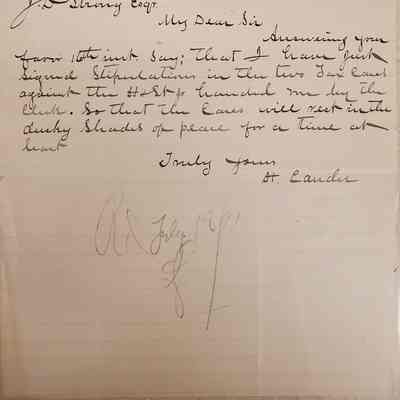 J.D. Strong Esqr
My Dear Sir
Answering your
favor 16th inst. Say; that I have just
signed Stipulations in the two Tax Cases
against the H&St Jo handed me by the
Clerk. So that the Cases will rest in the
dusky Shades of peace for a time at
least
Truly Yours
H. Lander
July 19